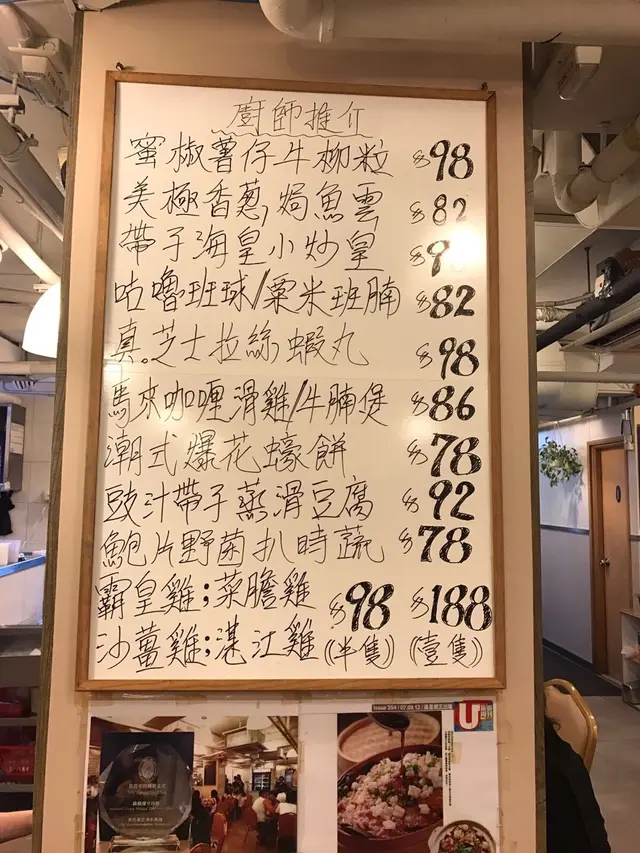 廚師推介
蜜椒薯仔牛柳粒 $98
美極香蔥,焗魚雲 $82
帶子海皇小炒皇 $9
咕嚕班球/粟米班腩 $82
真。芝士拉絲蝦丸 $98
馬來咖喱滑雞/牛腩煲 $86
潮式爆花蠔餅 $78
豉汁帶子蒸滑豆腐 $92
鮑片野菌扒時蔬 $78
霸皇雞;菜膽雞 $98 $188
沙薑雞;湛江雞 (半隻) (壹隻)
Issue 354 / 07.09.12
U